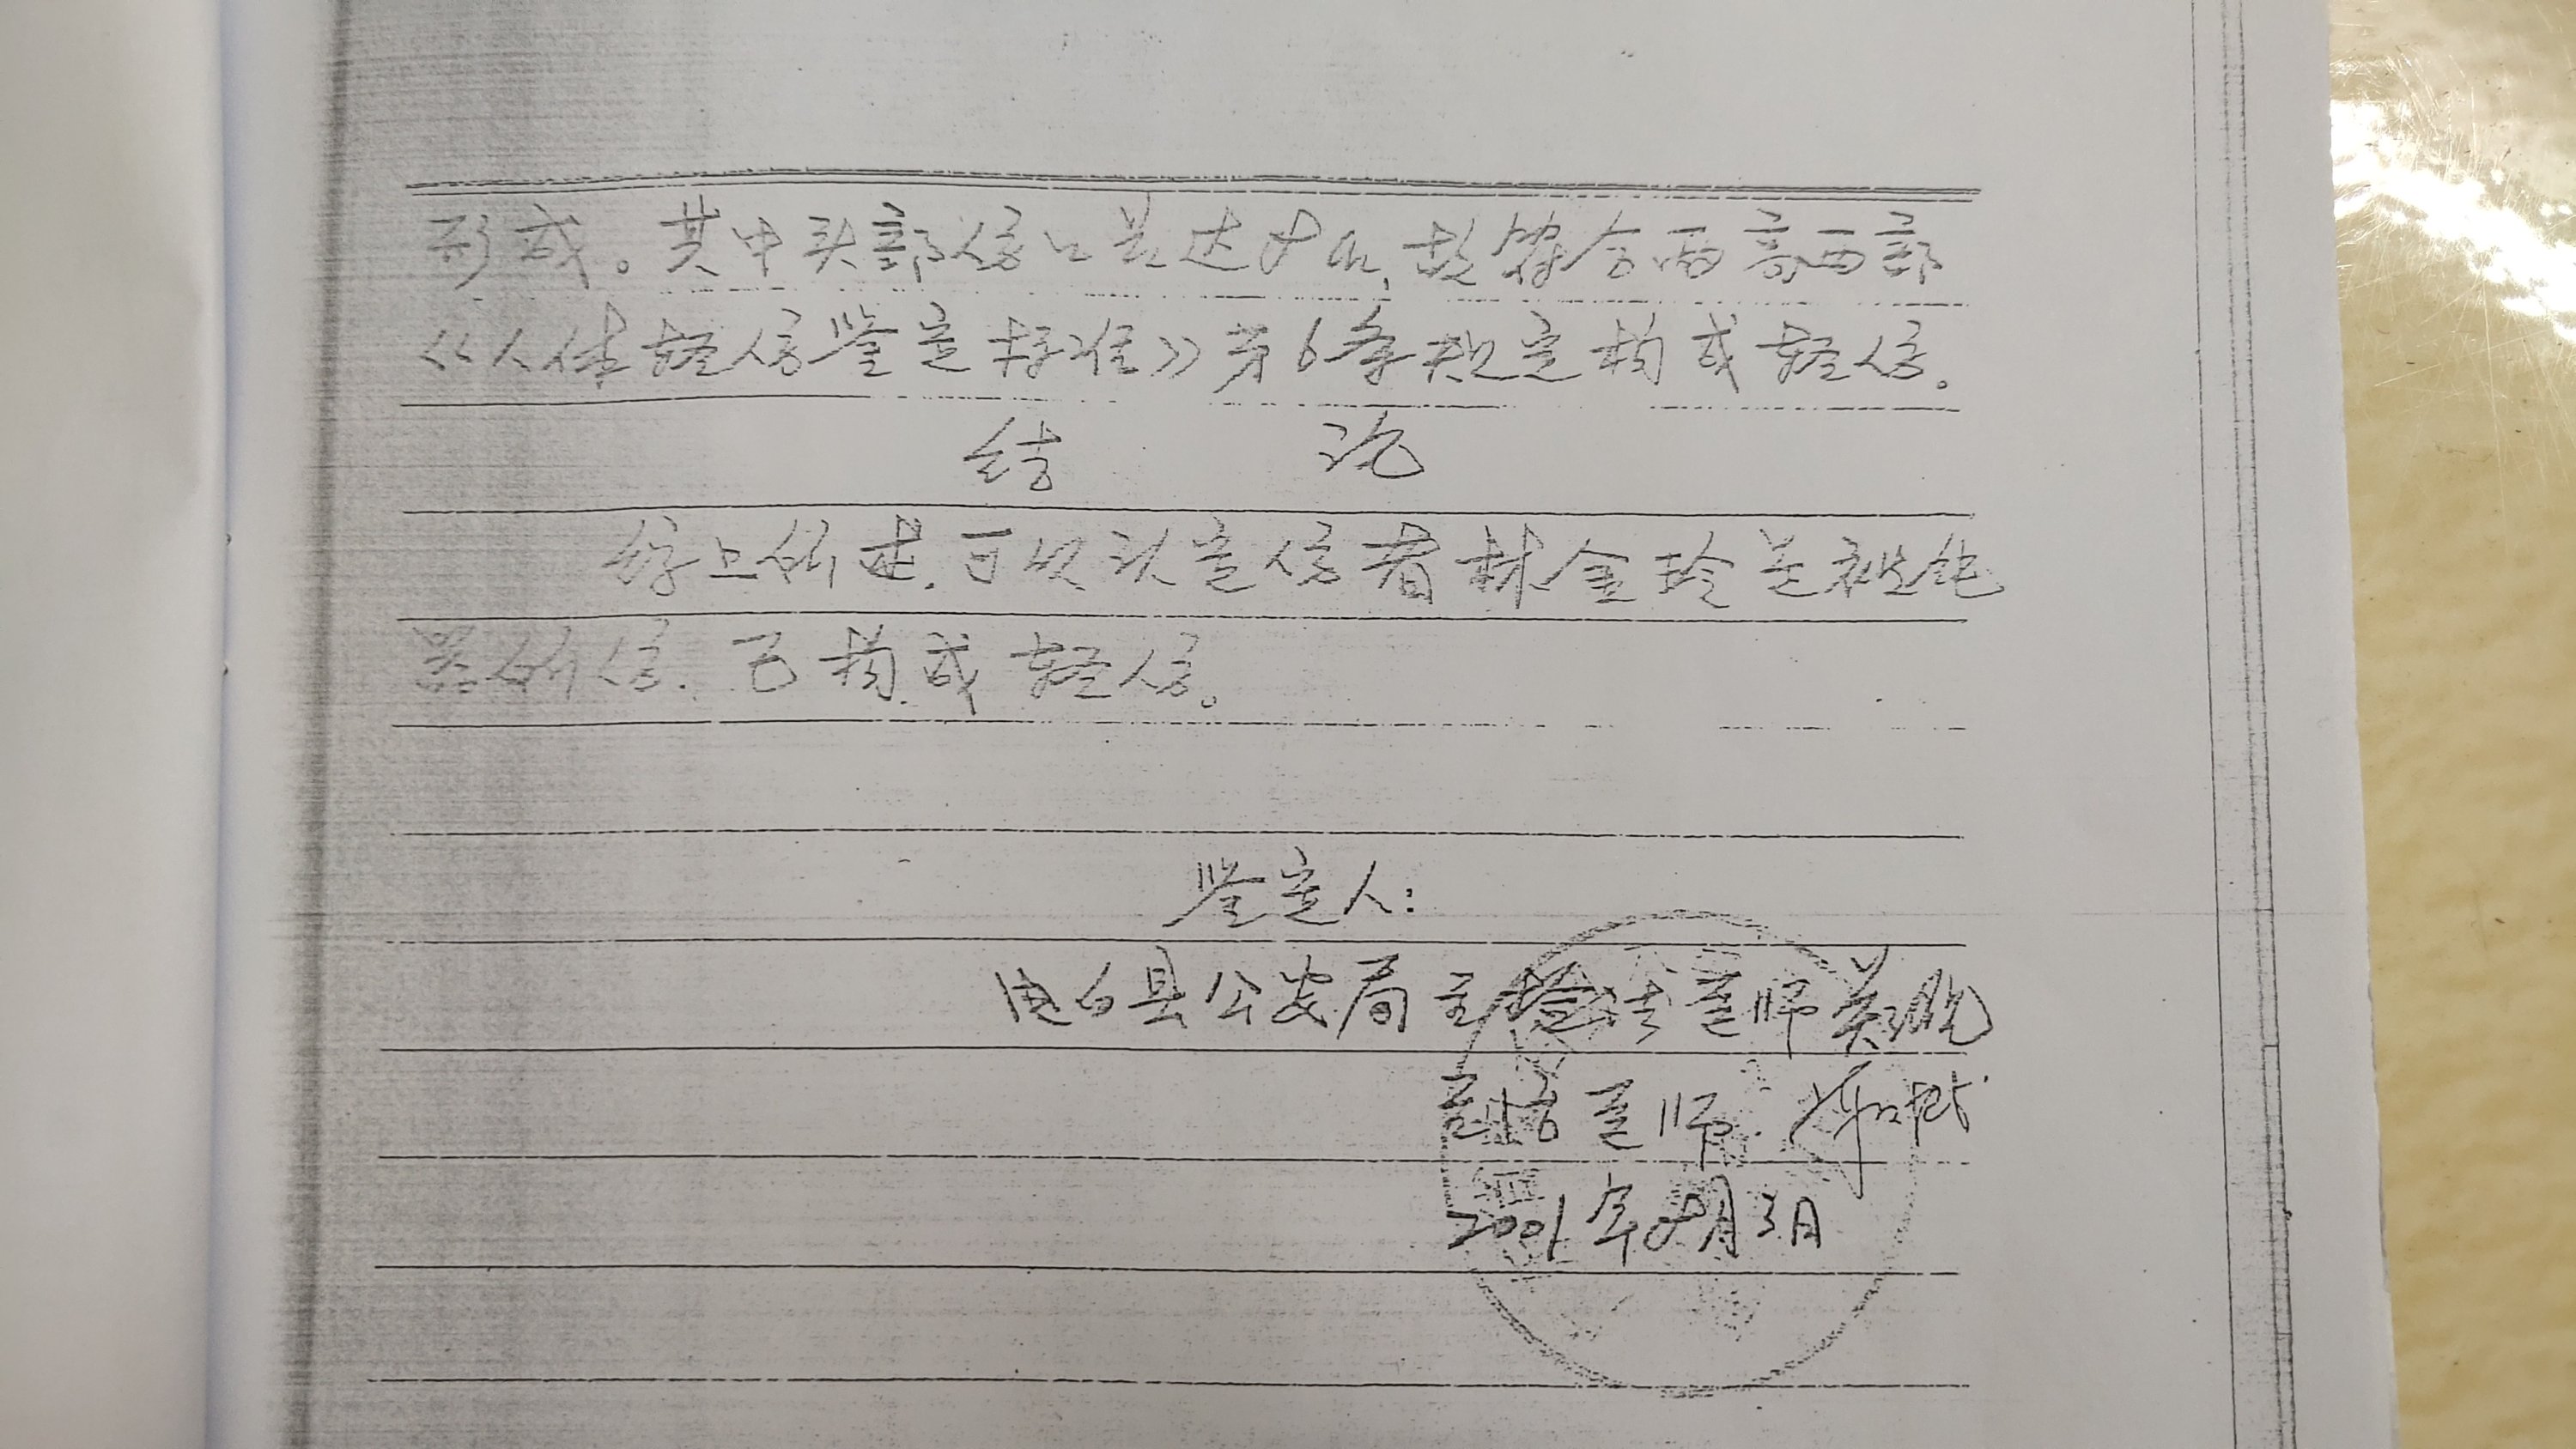 形成。其中头部伤口长达8cm,故符合两高两部
《人体轻伤鉴定标准》第6条规定构成轻伤。
结 论
综上所述,可以认定伤者林金玲是被钝
器所伤,已构成轻伤。
鉴定人:
电白县公安局主检法医师
医师
2001年8月3日